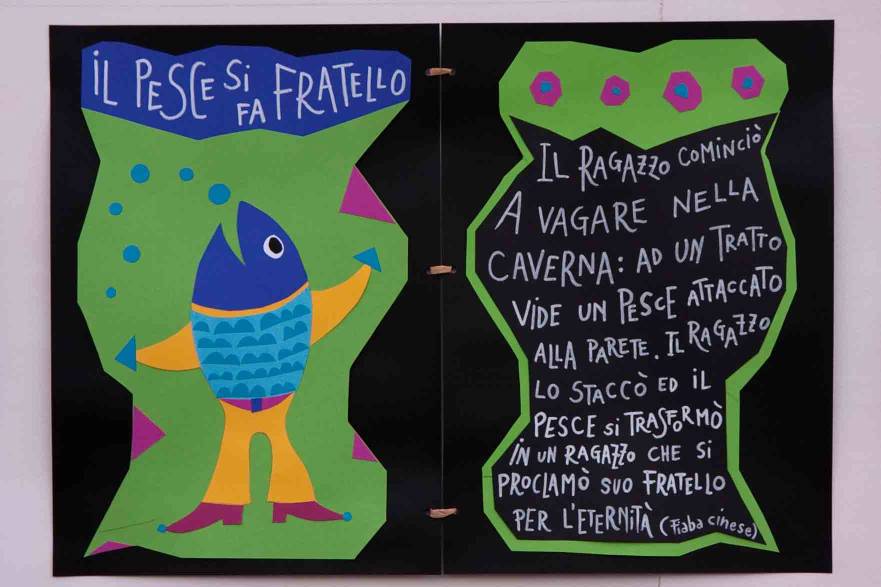 IL PESCE SI
FA FRATELLO
IL RAGAZZO COMINCIÒ
A VAGARE NELLA
CAVERNA: AD UN TRATTO
VIDE UN PESCE ATTACCATO
ALLA PARETE. IL RAGAZZO
LO STACCÒ ED IL
PESCE SI TRASFORMÒ
IN UN RAGAZZO CHE SI
PROCLAMÒ SUO FRATELLO
PER L'ETERNITÀ (Fiaba cinese)